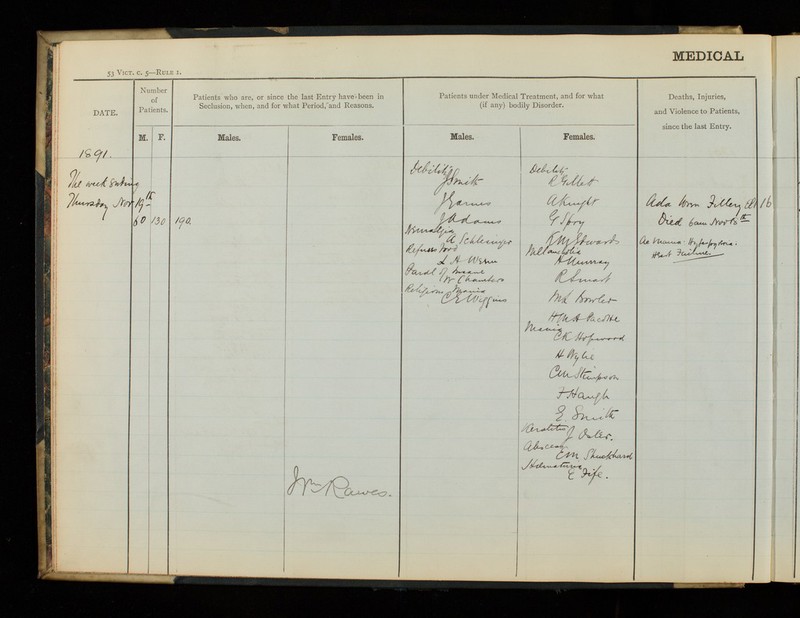 MEDICAL
53 VICT. c. 5—RULE 1.
DATE.
Number
of
Patients.
M. F.
Patients who are, or since the last Entry have been in
Seclusion, when, and for what Period, and Reasons.
Males. Females.
Patients under Medical Treatment, and for what
(if any) bodily Disorder.
Males. Females.
Deaths, Injuries,
and Violence to Patients,
since the last Entry.
1891.
The week Ending
Thursday Nov 19th
60 130 190.
Debility
J Smith
J Adams
Neuralgia
A. Schlesinger
Refuses Food
Paral of Insane
W Chambers
Religious Mania
C E Wiggins
Debility
R Gillett
A Knight
G Spry
K M Edwards
Melancholia
A Murray
R Smart
M L Bowler
Mania
C K Hopwood
H Wylie
C M Stimpson
F Haugh
E Smith
Keratitis
J Oxler.
Abscess
E M Shuckhard
Hematuria
E Fife.
Ada
Died 6am Nov 15th
Heart Failure.
J Wm Rawes.